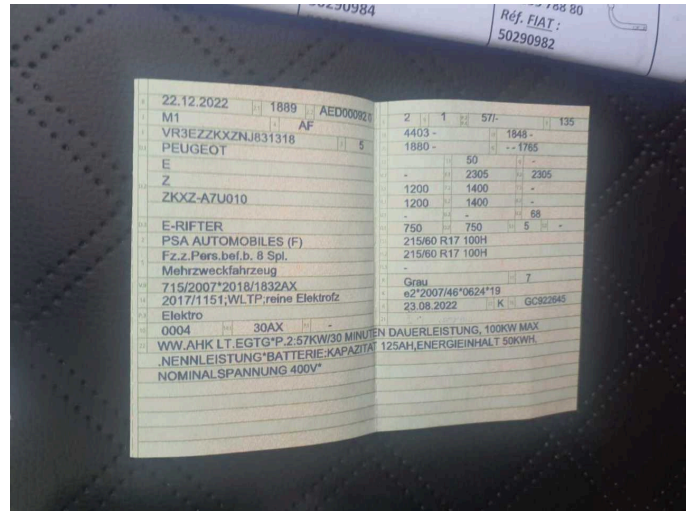 50290984
Réf. FIAT :
50290982
22.12.2022 1889 AED00092
M1 AF
VR3EZZKXZNJ831318 5
PEUGEOT
E
Z
ZKXZ-A7U010
E-RIFTER
PSA AUTOMOBILES (F)
Fz.z.Pers.bef.b. 8 Spl.
Mehrzweckfahrzeug
715/2007*2018/1832AX
2017/1151;WLTP;reine Elektrofz
Elektro
0004 30AX -
WW.AHK LT.EGTG*P.2:57KW/30 MINUTEN DAUERLEISTUNG, 100KW MAX
.NENNLEISTUNG*BATTERIE:KAPAZITAT 125AH,ENERGIEINHALT 50KWH.
NOMINALSPANNUNG 400V*
2 1 57/- 135
4403 - 1848 -
1880 - - - 1765
- 50 -
- 2305 2305
1200 1400 -
1200 1400 -
- - 68
750 750 5 -
215/60 R17 100H
215/60 R17 100H
-
-
Grau 7
e2*2007/46*0624*19
23.08.2022 K GC922645